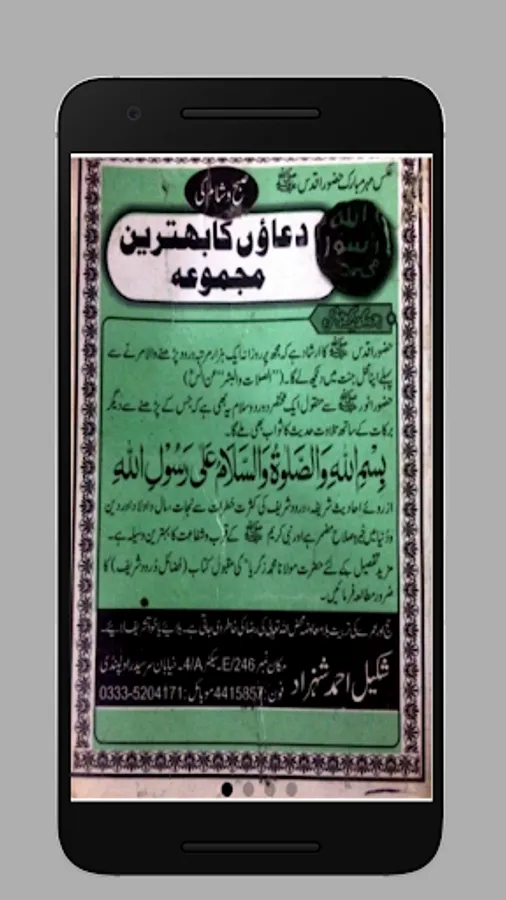 عکس مہر مبارک حضور اقدس ﷺ
صبح و شام کی
دعاؤں کا بہترین
مجموعہ
اللہ
رسول
محمد
حضور اقدس ﷺ کا ارشاد ہے کہ مجھ پر روزانہ ایک ہزار مرتبہ درود پڑھنے والا مرنے سے
پہلے اپنا محل جنت میں دیکھ لے گا۔ (الصلات والبشر عن انسؓ)
حضور انور ﷺ سے منقول ایک مختصر درود و سلام یہ بھی ہے کہ جس کے پڑھنے سے دیگر
برکات کے ساتھ تلاوت حدیث کا ثواب بھی ملے گا۔
بِسْمِ اللهِ وَالصَّلٰوةُ وَالسَّلَامُ عَلٰى رَسُوْلِ اللهِ
از روئے احادیث شریفہ، درود شریف کی کثرت خطرات سے نجات، مال و اولاد اور دین
و دنیا میں خیر و اصلاح مضمر ہے اور نبی کریم ﷺ کے قرب و شفاعت کا بہترین وسیلہ ہے۔
مزید تفصیل کے لئے حضرت مولانا محمد زکریاؒ کی مقبول کتاب (فضائل درود شریف) کا
ضرور مطالعہ فرمائیں۔
حج اور عمرے کی تربیت بلا معاوضہ محض اللہ تعالیٰ کی رضا کی خاطر دی جاتی ہے۔ بلائیے یا خود تشریف لائیے۔
شکیل احمد شہزاد
مکان نمبر E/246۔ سیکٹر 4/A۔ خیابان سرسید راولپنڈی
فون: 4415857 موبائل: 0333-5204171